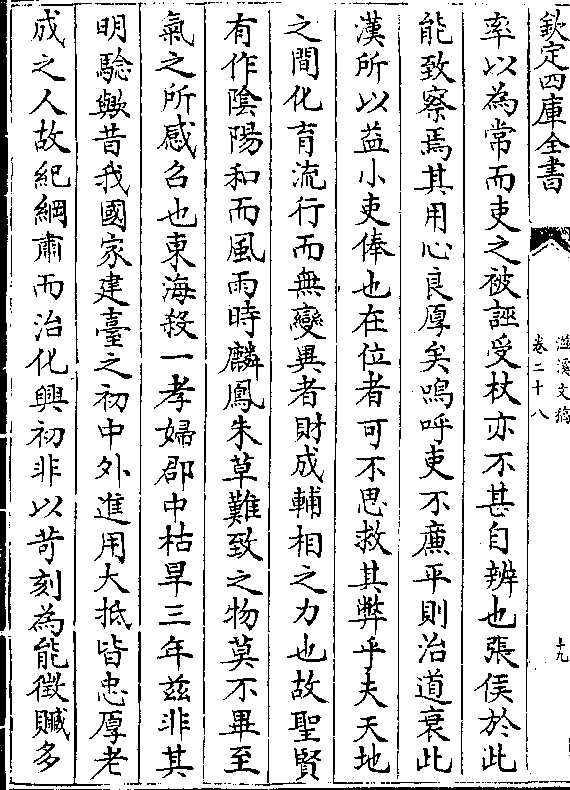 欽定四庫全書
滋溪文稿
卷二十八
十九
率以為常而吏之被誣受杖亦不甚自辨也張侯於此
能致察焉其用心良厚矣嗚呼吏不廉平則治道衰此
漢所以益小吏俸也在位者可不思救其弊乎夫天地
之間化育流行而無變異者財成輔相之力也故聖賢
有作陰陽和而風雨時麟鳳朱草難致之物莫不畢至
氣之所感召也東海殺一孝婦郡中枯旱三年兹非其
明驗歟昔我國家建臺之初中外進用大抵皆忠厚老
成之人故紀綱肅而治化興初非以苛刻為能徵贓多